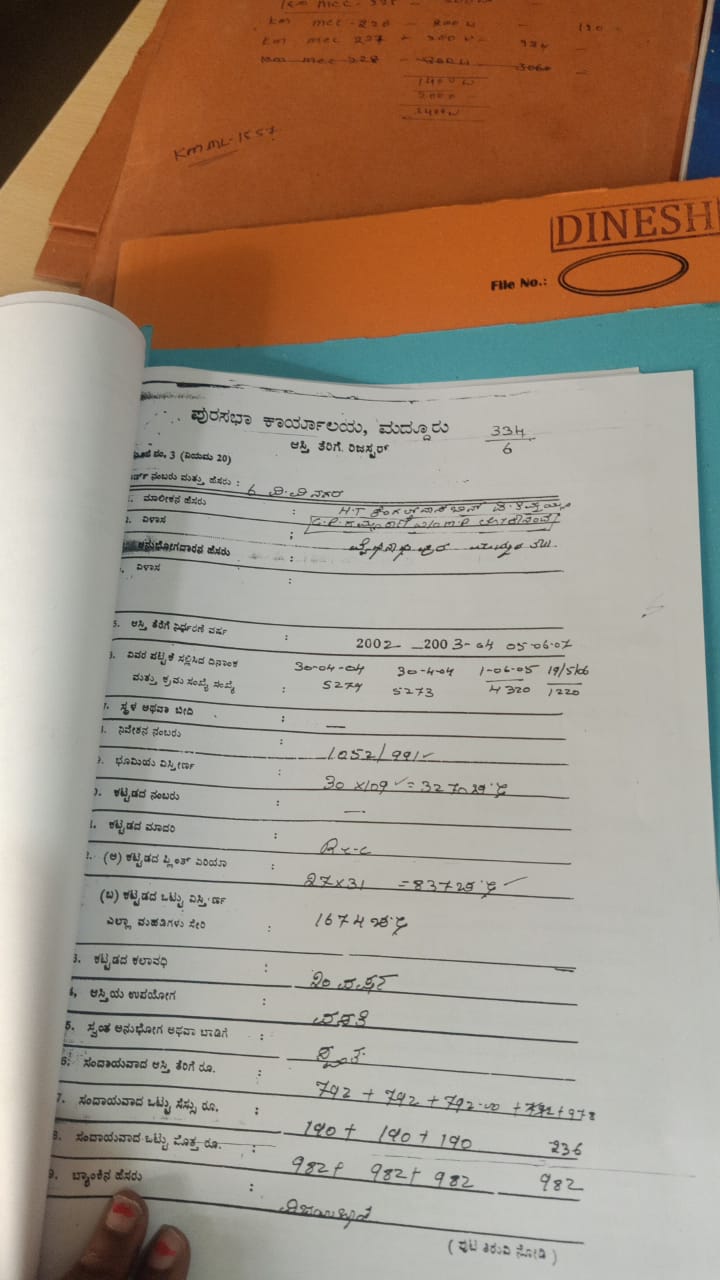 KM MCC-226 - 200 W - 190 -
KM MCC 227 + 200 W - 334 -
KM MCC 228 - 800 W - 3060 -
1400 W
2400 W
KMML-1557
DINESH
File No.:
ಪುರಸಭಾ ಕಾರ್ಯಾಲಯ, ಮದ್ದೂರು 334/6
ಆಸ್ತಿ ತೆರಿಗೆ ರಿಜಸ್ಟರ್
ನಂ. 3 (ನಿಯಮ 20)
ನಂಬರು ಮತ್ತು ಹೆಸರು : 6 ವಿ.ವಿ ನಗರ
ಮಾಲೀಕನ ಹೆಸರು : H.T
ವಿಳಾಸ :
ಅನುಭೋಗದಾರನ ಹೆಸರು :
ವಿಳಾಸ :
5. ಆಸ್ತಿ ತೆರಿಗೆ ನಿರ್ಧರಣೆ ವರ್ಷ : 2002 - 2003-04 05-06-07
ವಿವರ ಪಟ್ಟಿಕೆ ಸಲ್ಲಿಸಿದ ದಿನಾಂಕ 30-04-04 30-4-04 1-06-05 19/5/06
ಮತ್ತು ಕ್ರಮ ಸಂಖ್ಯೆ ಸಂಖ್ಯೆ : 5274 5273 4320 1220
ಸ್ಥಳ ಅಥವಾ ಬೀದಿ : —
ನಿವೇಶನ ನಂಬರು : 1052/991
ಭೂಮಿಯ ವಿಸ್ತೀರ್ಣ : 30 x109 = 3270 ಚ.ಅ
ಕಟ್ಟಡದ ನಂಬರು : —
ಕಟ್ಟಡದ ಮಾದರಿ : R.C.C
(ಅ) ಕಟ್ಟಡದ ಪ್ಲಿಂತ್ ಏರಿಯಾ : 27x31 = 837 ಚ.ಅ
(ಬ) ಕಟ್ಟಡದ ಒಟ್ಟು ವಿಸ್ತೀರ್ಣ
ಎಲ್ಲಾ ಮಹಡಿಗಳು ಸೇರಿ : 1674 ಚ.ಅ
3. ಕಟ್ಟಡದ ಕಲಾವಧಿ : 20 ವರ್ಷ
4, ಆಸ್ತಿಯ ಉಪಯೋಗ : ವಸತಿ
5. ಸ್ವಂತ ಅನುಭೋಗ ಅಥವಾ ಬಾಡಿಗೆ : ಸ್ವಂತ
6. ಸಂದಾಯವಾದ ಆಸ್ತಿ ತೆರಿಗೆ ರೂ. : 792 + 792 + 792-00 + 792 + 978
7. ಸಂದಾಯವಾದ ಒಟ್ಟು ಸೆಸ್ಸು ರೂ. : 190 + 190 + 190 236
8. ಸಂದಾಯವಾದ ಒಟ್ಟು ಮೊತ್ತ ರೂ. : 982+ 982+ 982 982
9. ಬ್ಯಾಂಕಿನ ಹೆಸರು :
( ಪುಟ ತಿರುವಿ ನೋಡಿ )